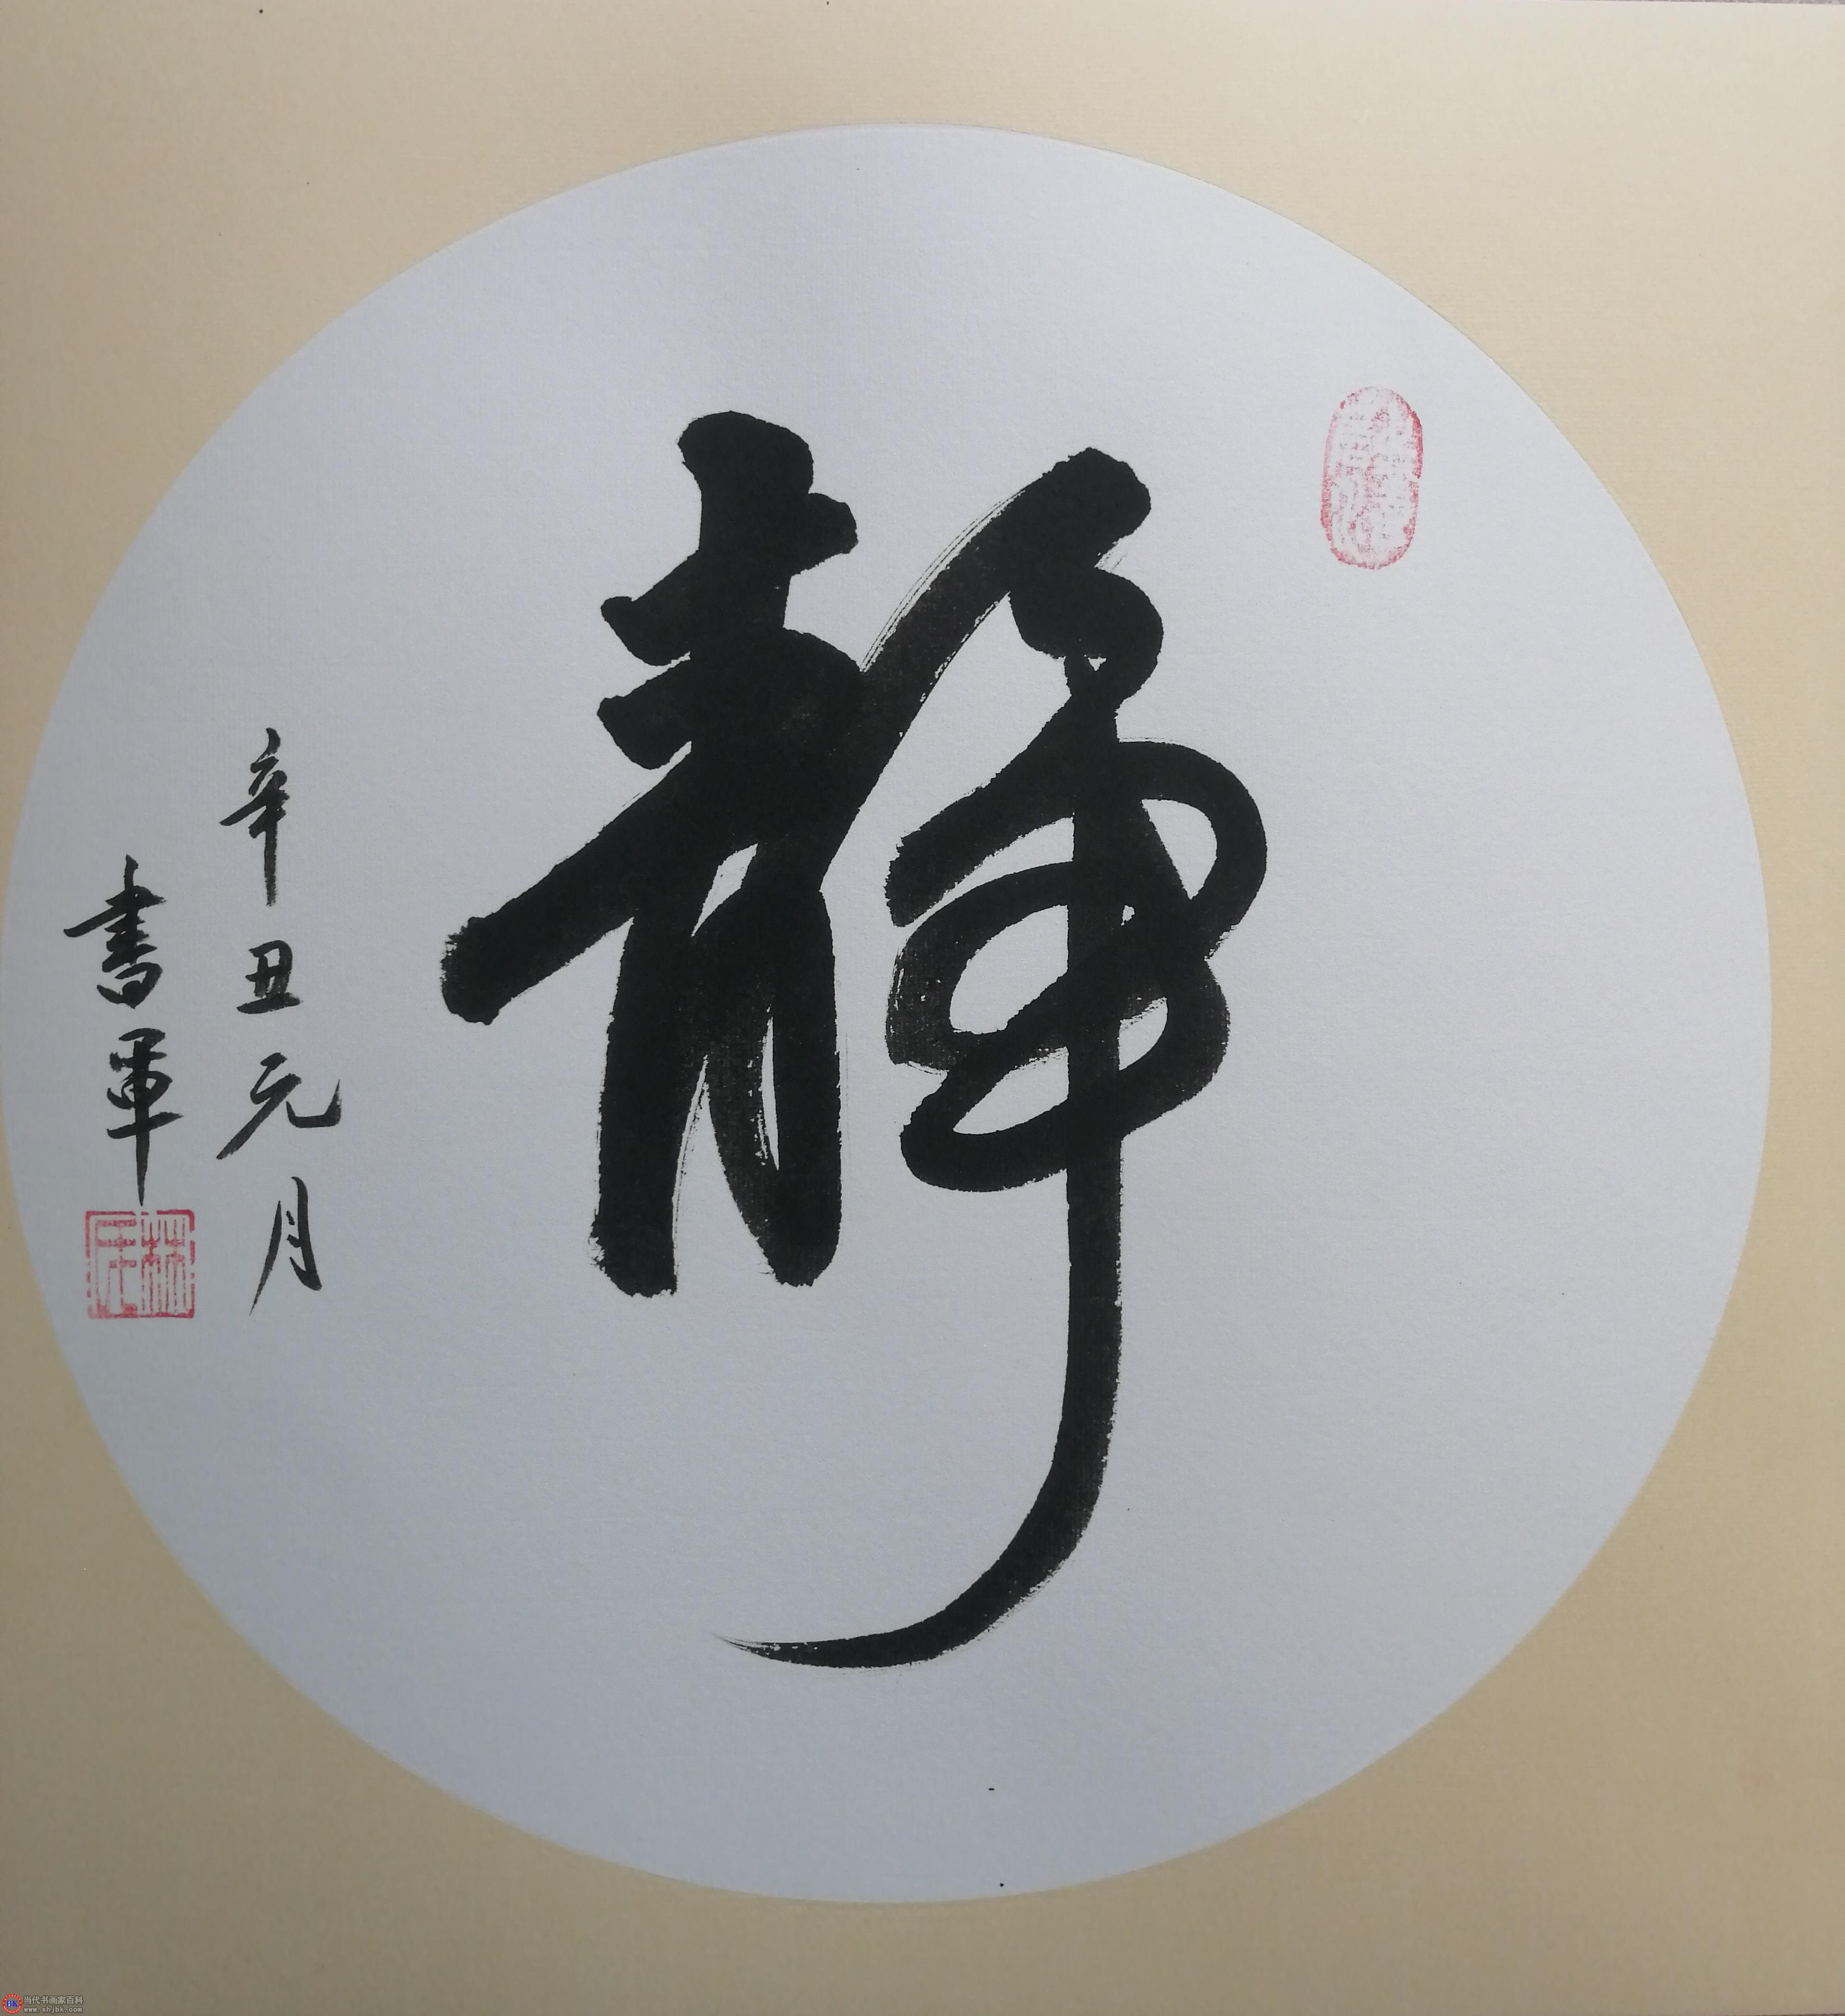 静
辛丑元月
書軍
BK 当代书画家百科
www.shjbk.com